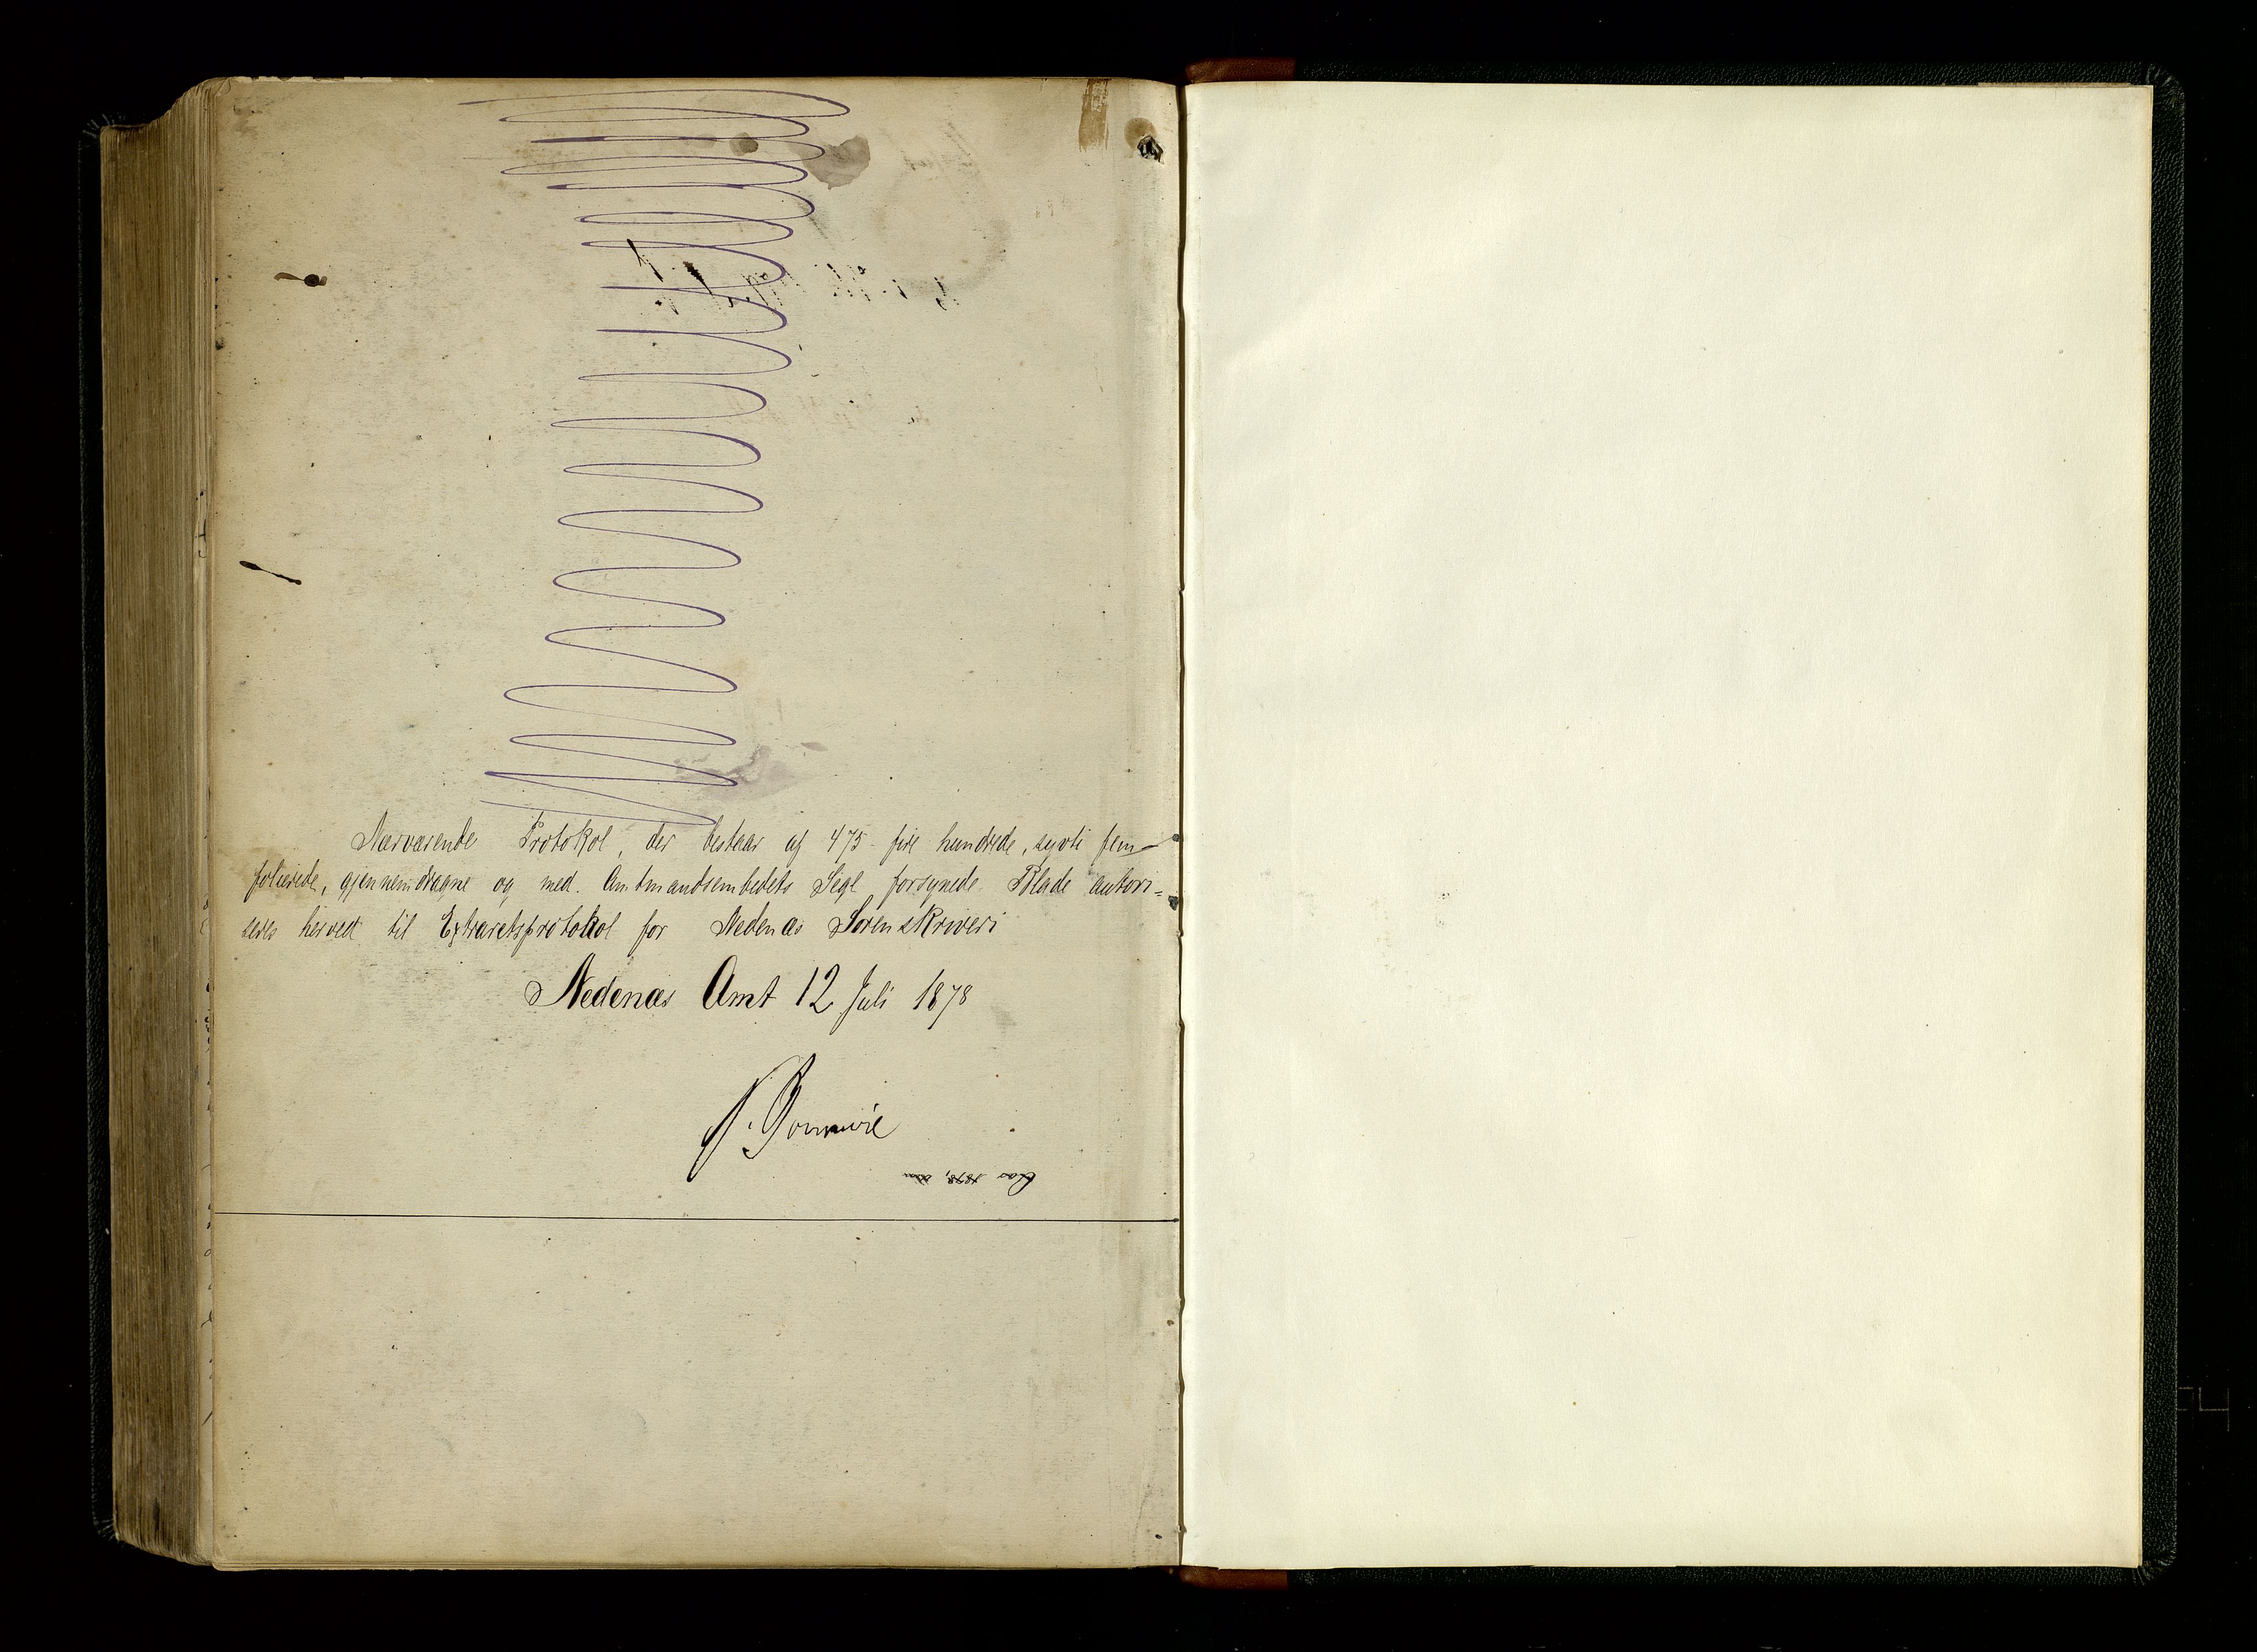 Nærværende Protokol, der bestaar af 475 fire hundrede, sytti fem
folierede, gjennemdragne og med Amtmandsembedets Segl forsynede Blade autori=
seres herved til Extraretsprotokol for Nedenæs Sorenskriveri
Nedenæs Amt 12 Juli 1878
Aar 1878, den